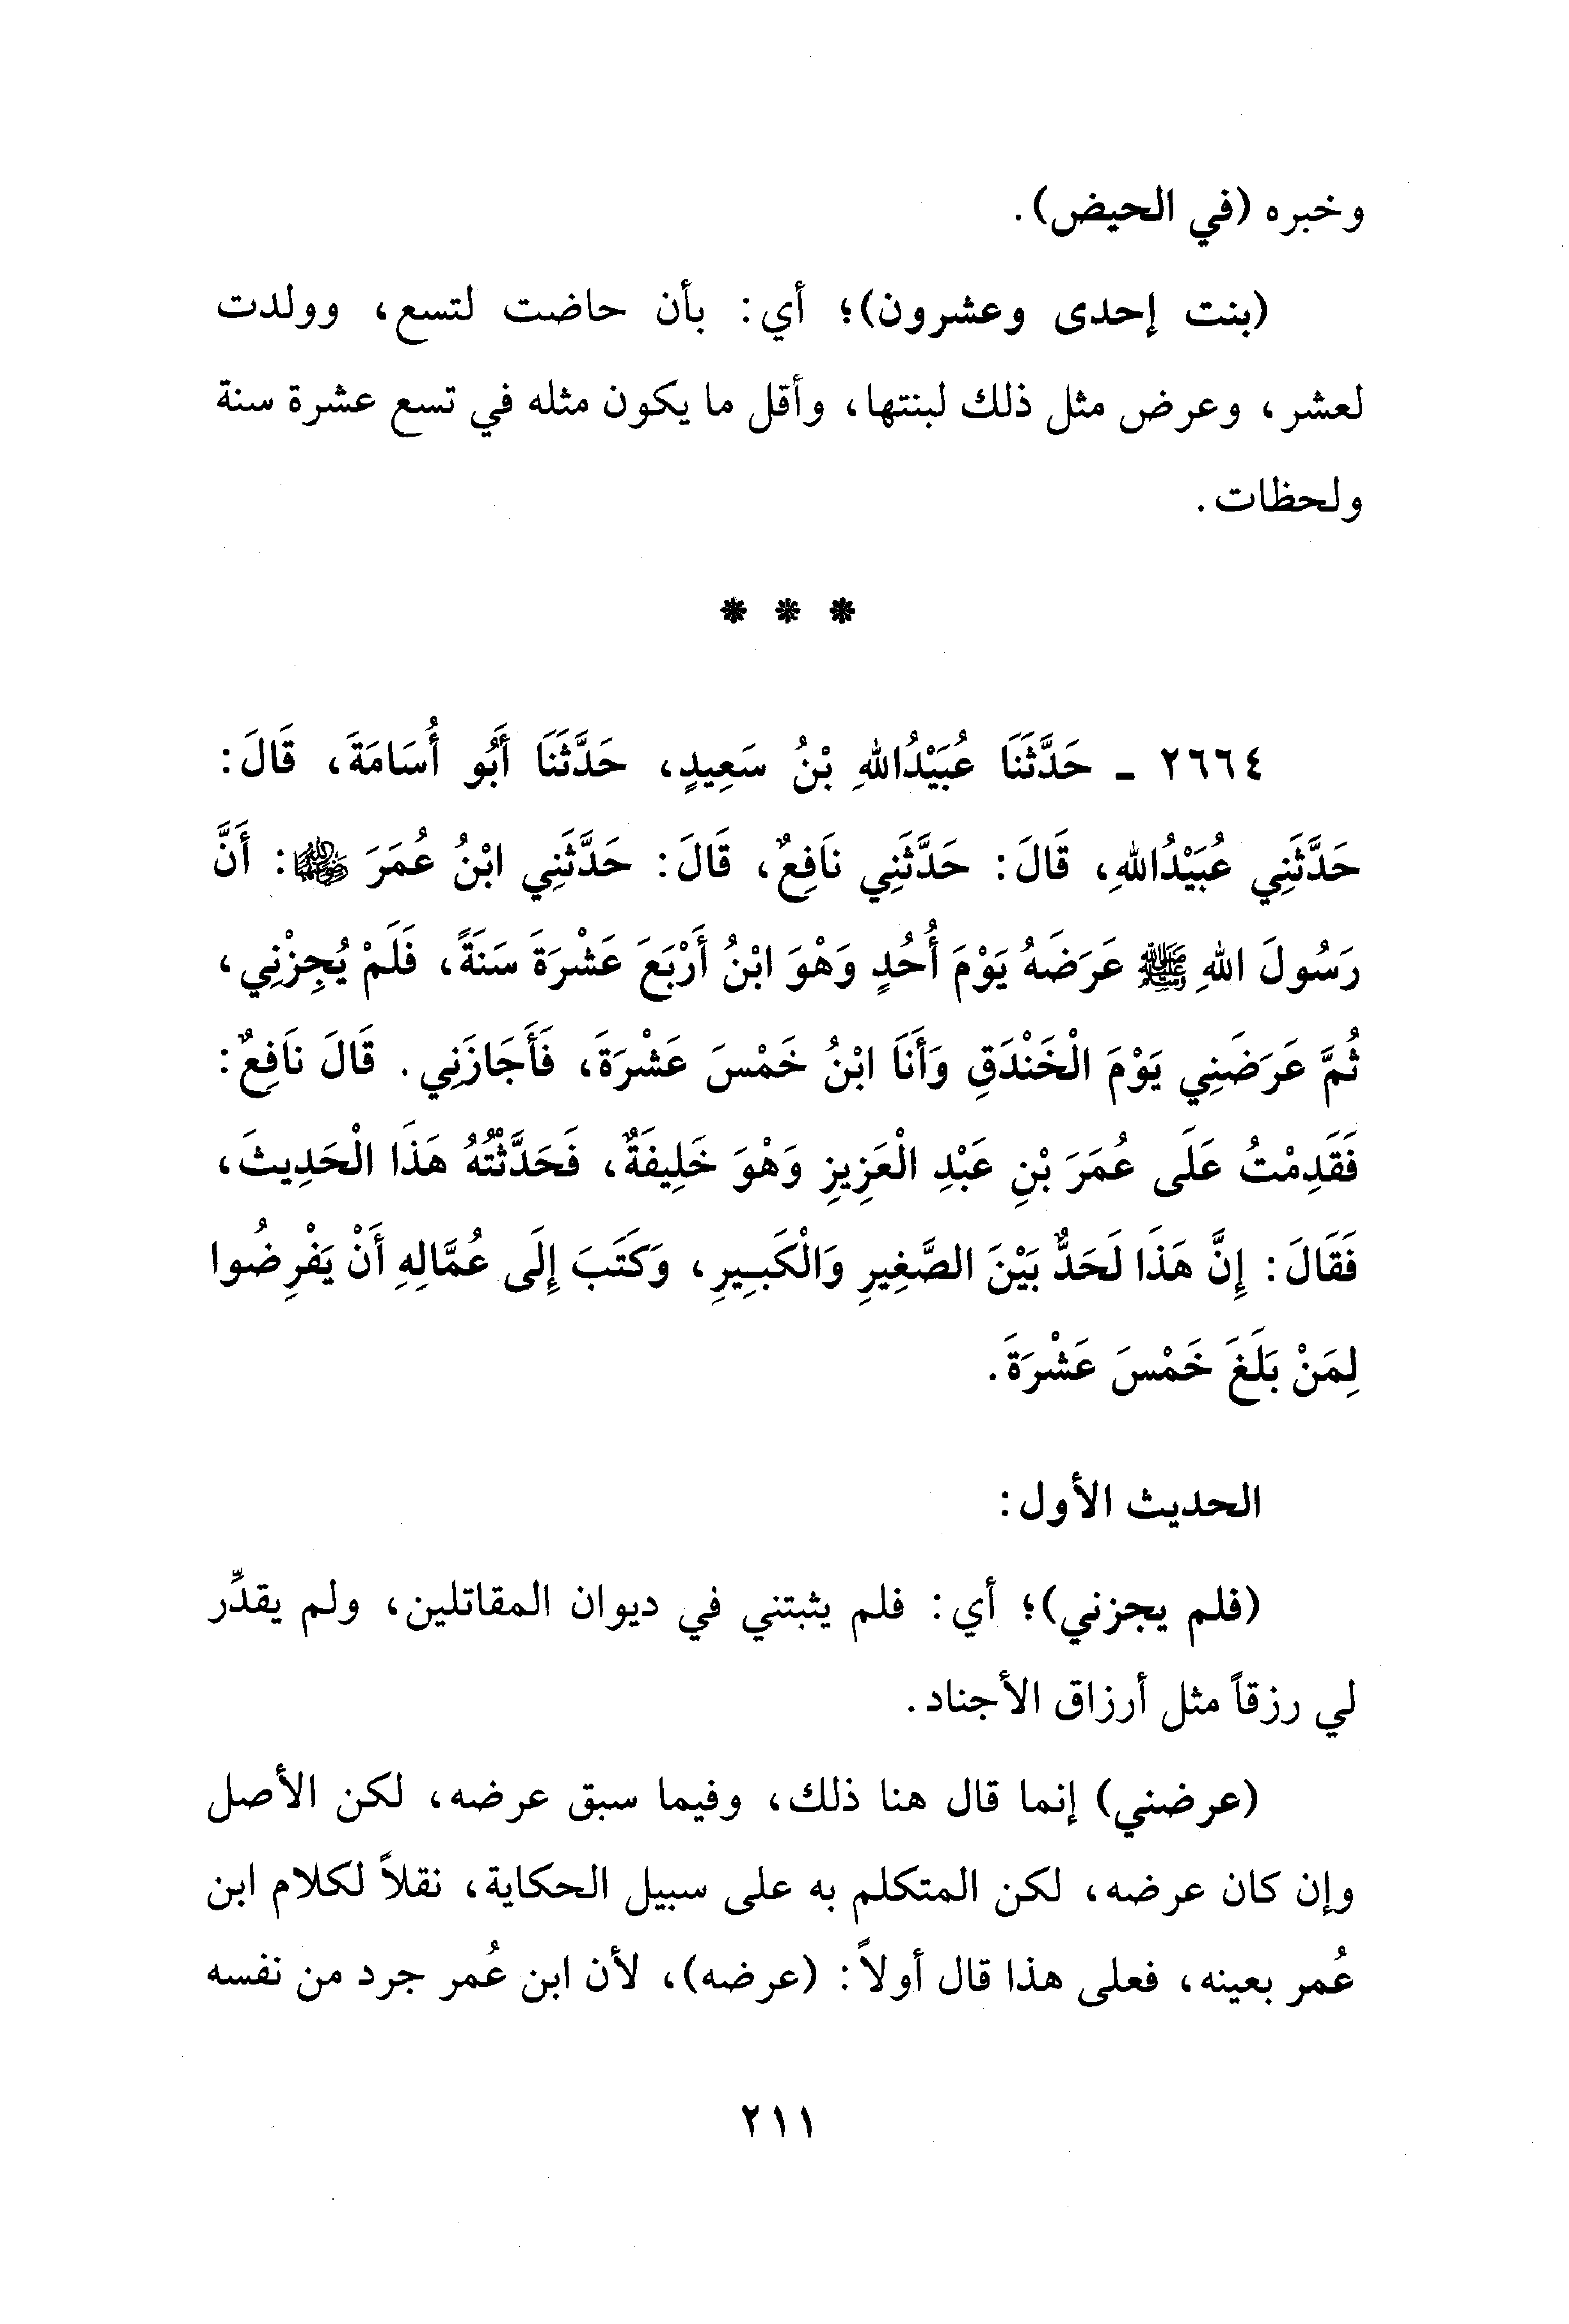 وخبره (في الحيض).
(بنت إحدى وعشرون)؛ أي: بأن حاضت لتسع، وولدت
لعشر، وعرض مثل ذلك لبنتها، وأقل ما يكون مثله في تسع عشرة سنة
ولحظات.
* * *
٢٦٦٤ ـ حَدَّثَنَا عُبَيْدُاللهِ بْنُ سَعِيدٍ، حَدَّثَنَا أَبُو أُسَامَةَ، قَالَ:
حَدَّثَنِي عُبَيْدُاللهِ، قَالَ: حَدَّثَنِي نَافِعٌ، قَالَ: حَدَّثَنِي ابْنُ عُمَرَ ﵄: أَنَّ
رَسُولَ اللهِ ﷺ عَرَضَهُ يَوْمَ أُحُدٍ وَهْوَ ابْنُ أَرْبَعَ عَشْرَةَ سَنَةً، فَلَمْ يُجِزْنِي،
ثُمَّ عَرَضَنِي يَوْمَ الْخَنْدَقِ وَأَنَا ابْنُ خَمْسَ عَشْرَةَ، فَأَجَازَنِي. قَالَ نَافِعٌ:
فَقَدِمْتُ عَلَى عُمَرَ بْنِ عَبْدِ الْعَزِيزِ وَهْوَ خَلِيفَةٌ، فَحَدَّثْتُهُ هَذَا الْحَدِيثَ،
فَقَالَ: إِنَّ هَذَا لَحَدٌّ بَيْنَ الصَّغِيرِ وَالْكَبِيرِ، وَكَتَبَ إِلَى عُمَّالِهِ أَنْ يَفْرِضُوا
لِمَنْ بَلَغَ خَمْسَ عَشْرَةَ.
الحديث الأول:
(فلم يجزني)؛ أي: فلم يثبتني في ديوان المقاتلين، ولم يقدِّر
لي رزقاً مثل أرزاق الأجناد.
(عرضني) إنما قال هنا ذلك، وفيما سبق عرضه، لكن الأصل
وإن كان عرضه، لكن المتكلم به على سبيل الحكاية، نقلاً لكلام ابن
عُمر بعينه، فعلى هذا قال أولاً: (عرضه)، لأن ابن عُمر جرد من نفسه
٢١١